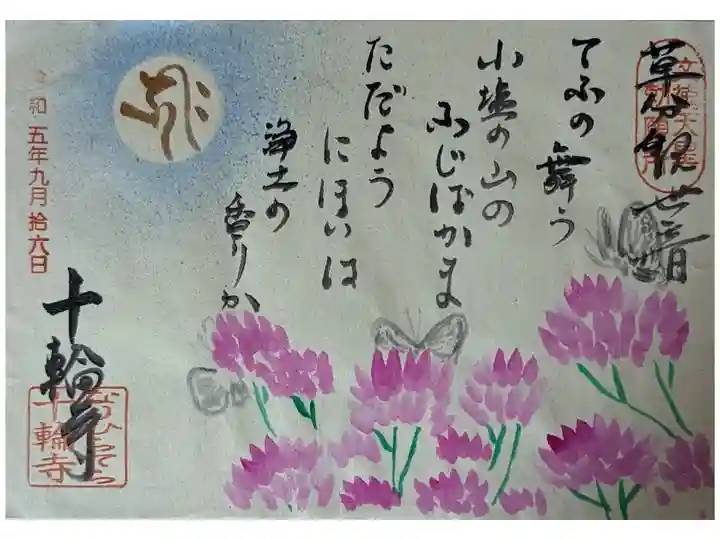 草分観世音
てふの舞う
小塩の山の
ふじばかま
ただよう
にほいは
浄土の
香りか
令和五年九月拾六日
十輪寺
なりひらでら
十輪寺